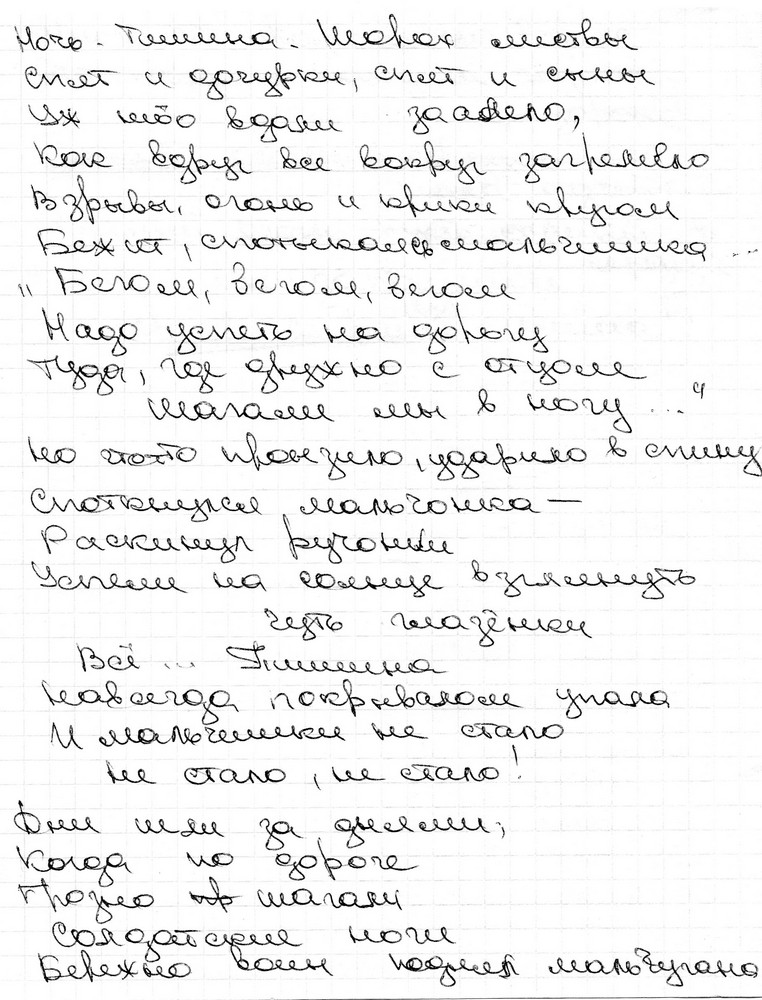 Ночь. Тишина. Шорох листвы
Спят и дочурки, спят и сыны
Уж небо вдали заалело,
Как вдруг все вокруг загремело
Взрывы, огонь и крики кругом
Бежит, спотыкаясь мальчишка ...
"Бегом, бегом, бегом
Надо успеть на дорогу
Туда, где дружно с отцом
Шагали мы в ногу ..."
Но что-то пронзило, ударило в спину
Споткнулся мальчонка —
Раскинул ручонки
Успели на солнце взглянуть
чуть глазёнки
Всё ... Тишина
Навсегда покрывалом упала
И мальчишки не стало
Не стало, не стало!
Дни шли за днями,
Когда по дороге
Грозно шагали
Солдатские ноги
Бережно воин поднял мальчугана